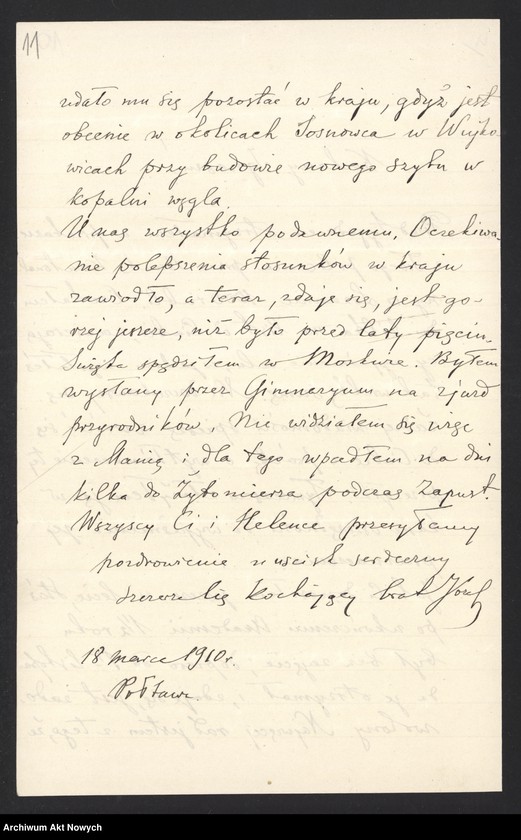 11
udało mu się pozostać w kraju, gdyż jest
obecnie w okolicach Sosnowca w Wujko-
wicach przy budowie nowego szybu w
kopalni węgla.
U nas wszystko podawnemu. Oczekiwa-
nie polepszenia stosunków w kraju
zawiodło, a teraz, zdaje się, jest go-
rzej jeszcze, niż było przed laty pięciu.
Święta spędziłem w Moskwie. Byłem
wysłany przez Gimnazyum na zjazd
przyrodników. Nie widziałem się więc
z Manią i dla tego wpadłem na dni
kilka do Żytomierza podczas Zapust.
Wszyscy Ci i Helence przesyłamy
pozdrowienie uścisk serdeczny
szczerze Cię kochający brat Józef
18 marca 1910 r.
Połtawa.
Archiwum Akt Nowych